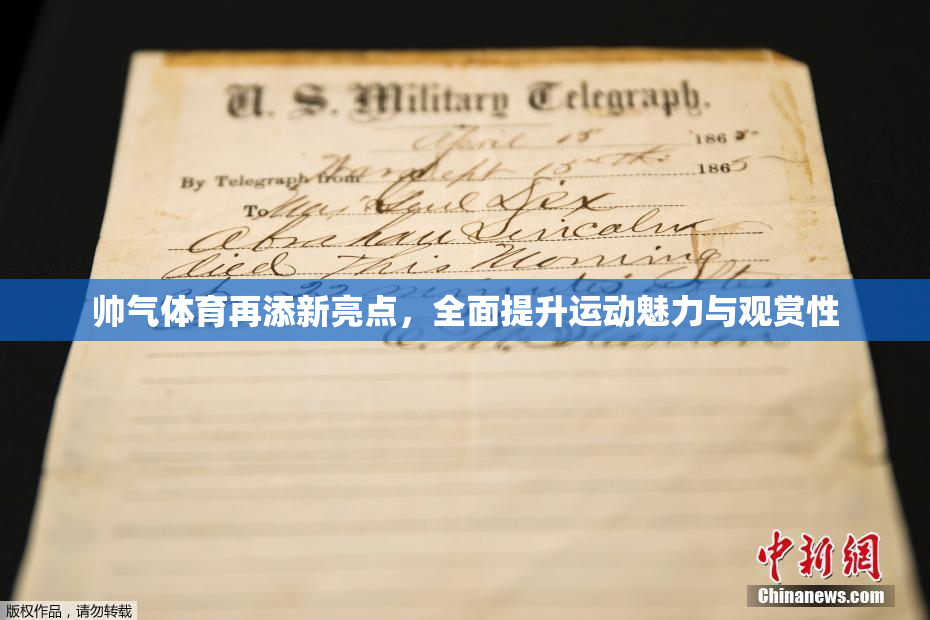 U. S. Military Telegraph.
April 15 1865
By Telegraph from War Dept 15th 1865
To Maj Genl Dix
Abraham Lincoln
died This Morning
at 22 minutes after
帅气体育再添新亮点，全面提升运动魅力与观赏性
E. M. Stanton
中新网
Chinanews.com
版权作品，请勿转载